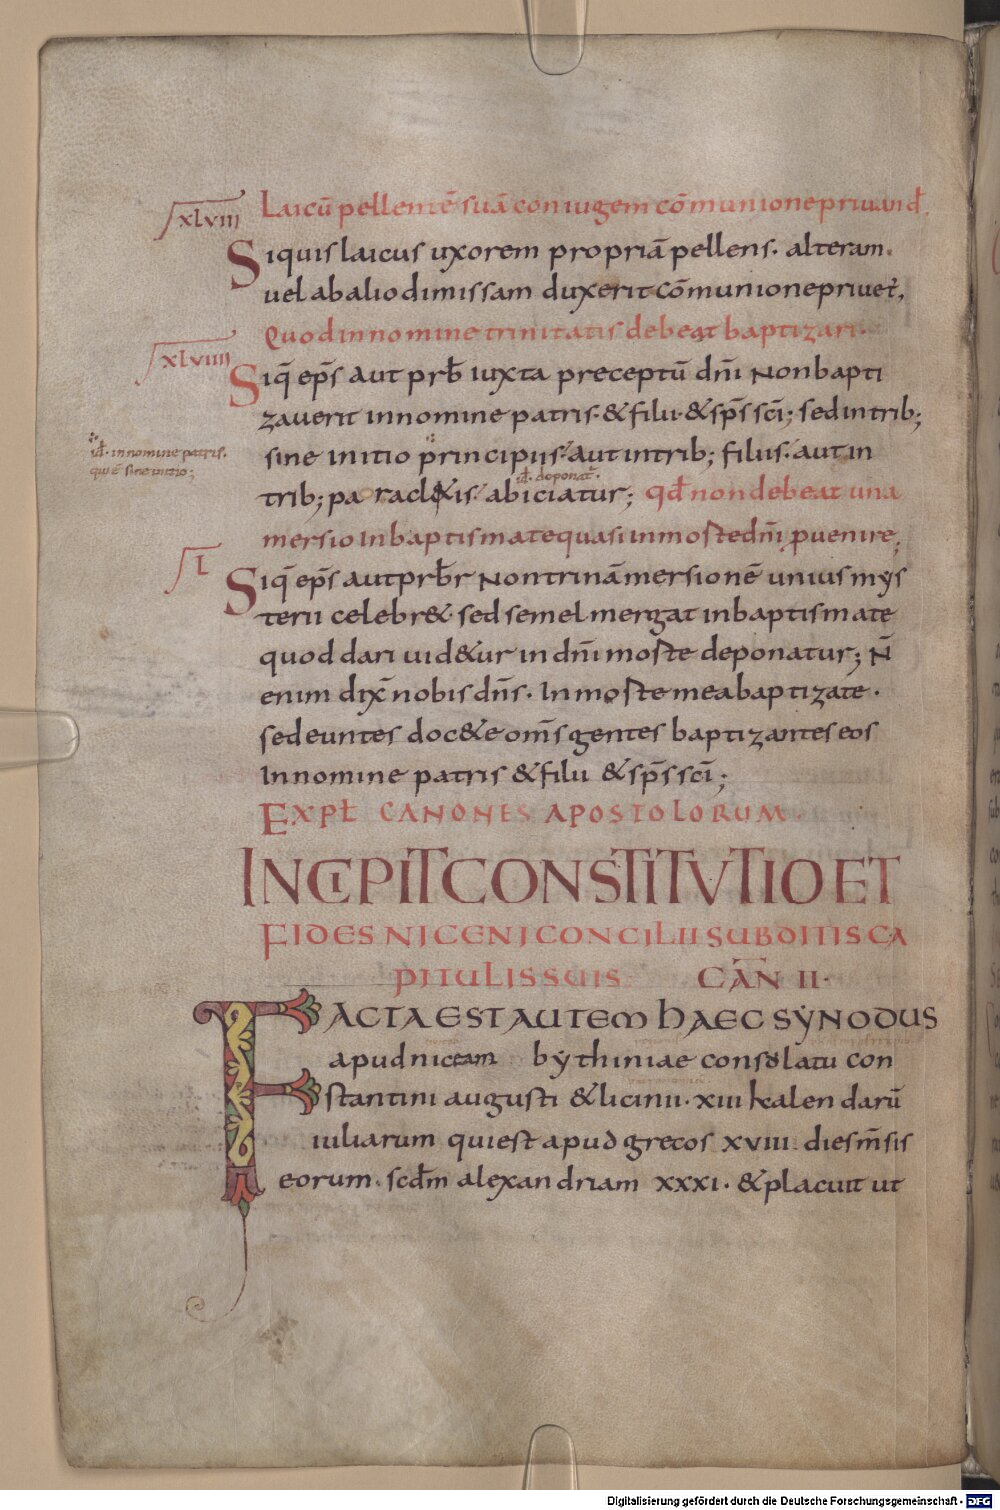 XLVIII
Laicū pellentē suā coniugem cōmunione priuand
Siquis laicus uxorem propriā pellens· alteram·
uel ab alio dimissam duxerit cōmunione priuet̄,
XLVIIII
Quod in nomine trinitatis debeat baptizari·
Siq̄ ep̄s aut prb̄ iuxta preceptū dn̄i Non bapti
zauerit in nomine patris· & filii· & sp̄s sc̄i; sed in trib;
id̄· in nomine patris·
qui ē sine initio;
sine initio principiis· aut in trib; filiis· aut in
id̄· deponat̄·
trib; paracletis abiciatur; qd̄ non debeat una
mersio In baptismate quasi in morte dn̄i puenire;
L
Siq̄ ep̄s aut prb̄r Non trinā mersionē unius mẏs
terii celebr& sed semel mergat in baptismate
quod dari uid&ur in dn̄i morte deponatur; N̄
enim dix̄ nobis dn̄s· In morte mea baptizate·
sed euntes doc&e om̄s gentes baptizantes eos
In nomine patris & filii & sp̄s sc̄i;
EXPŁ CANONES APOSTOLORUM·
INCIPIT CONSTITVTIO ET
FIDES NICENI CONCILII SUBDITIS CA
PITULIS SUIS CAN̄ II·
FACTA EST AUTEM HAEC SẎNODUS
apud niceam bẏthiniae consolatu con
stantini augusti & licinii· XIII kalendarū
iuliarum qui est apud grecos XVIII dies m̄sis
eorum· scd̄m alexandriam XXXI· & placuit ut
Digitalisierung gefördert durch die Deutsche Forschungsgemeinschaft - DFG